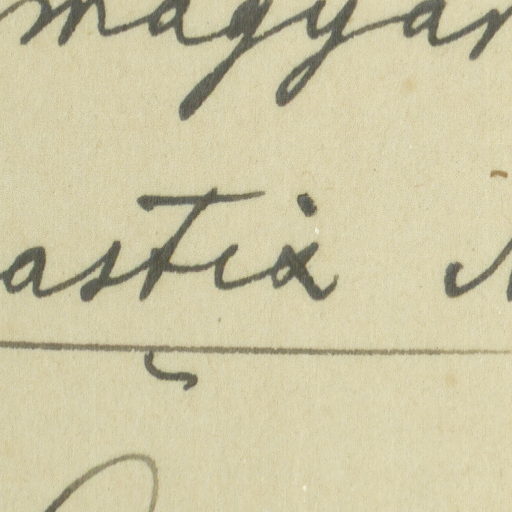 magyar
astix